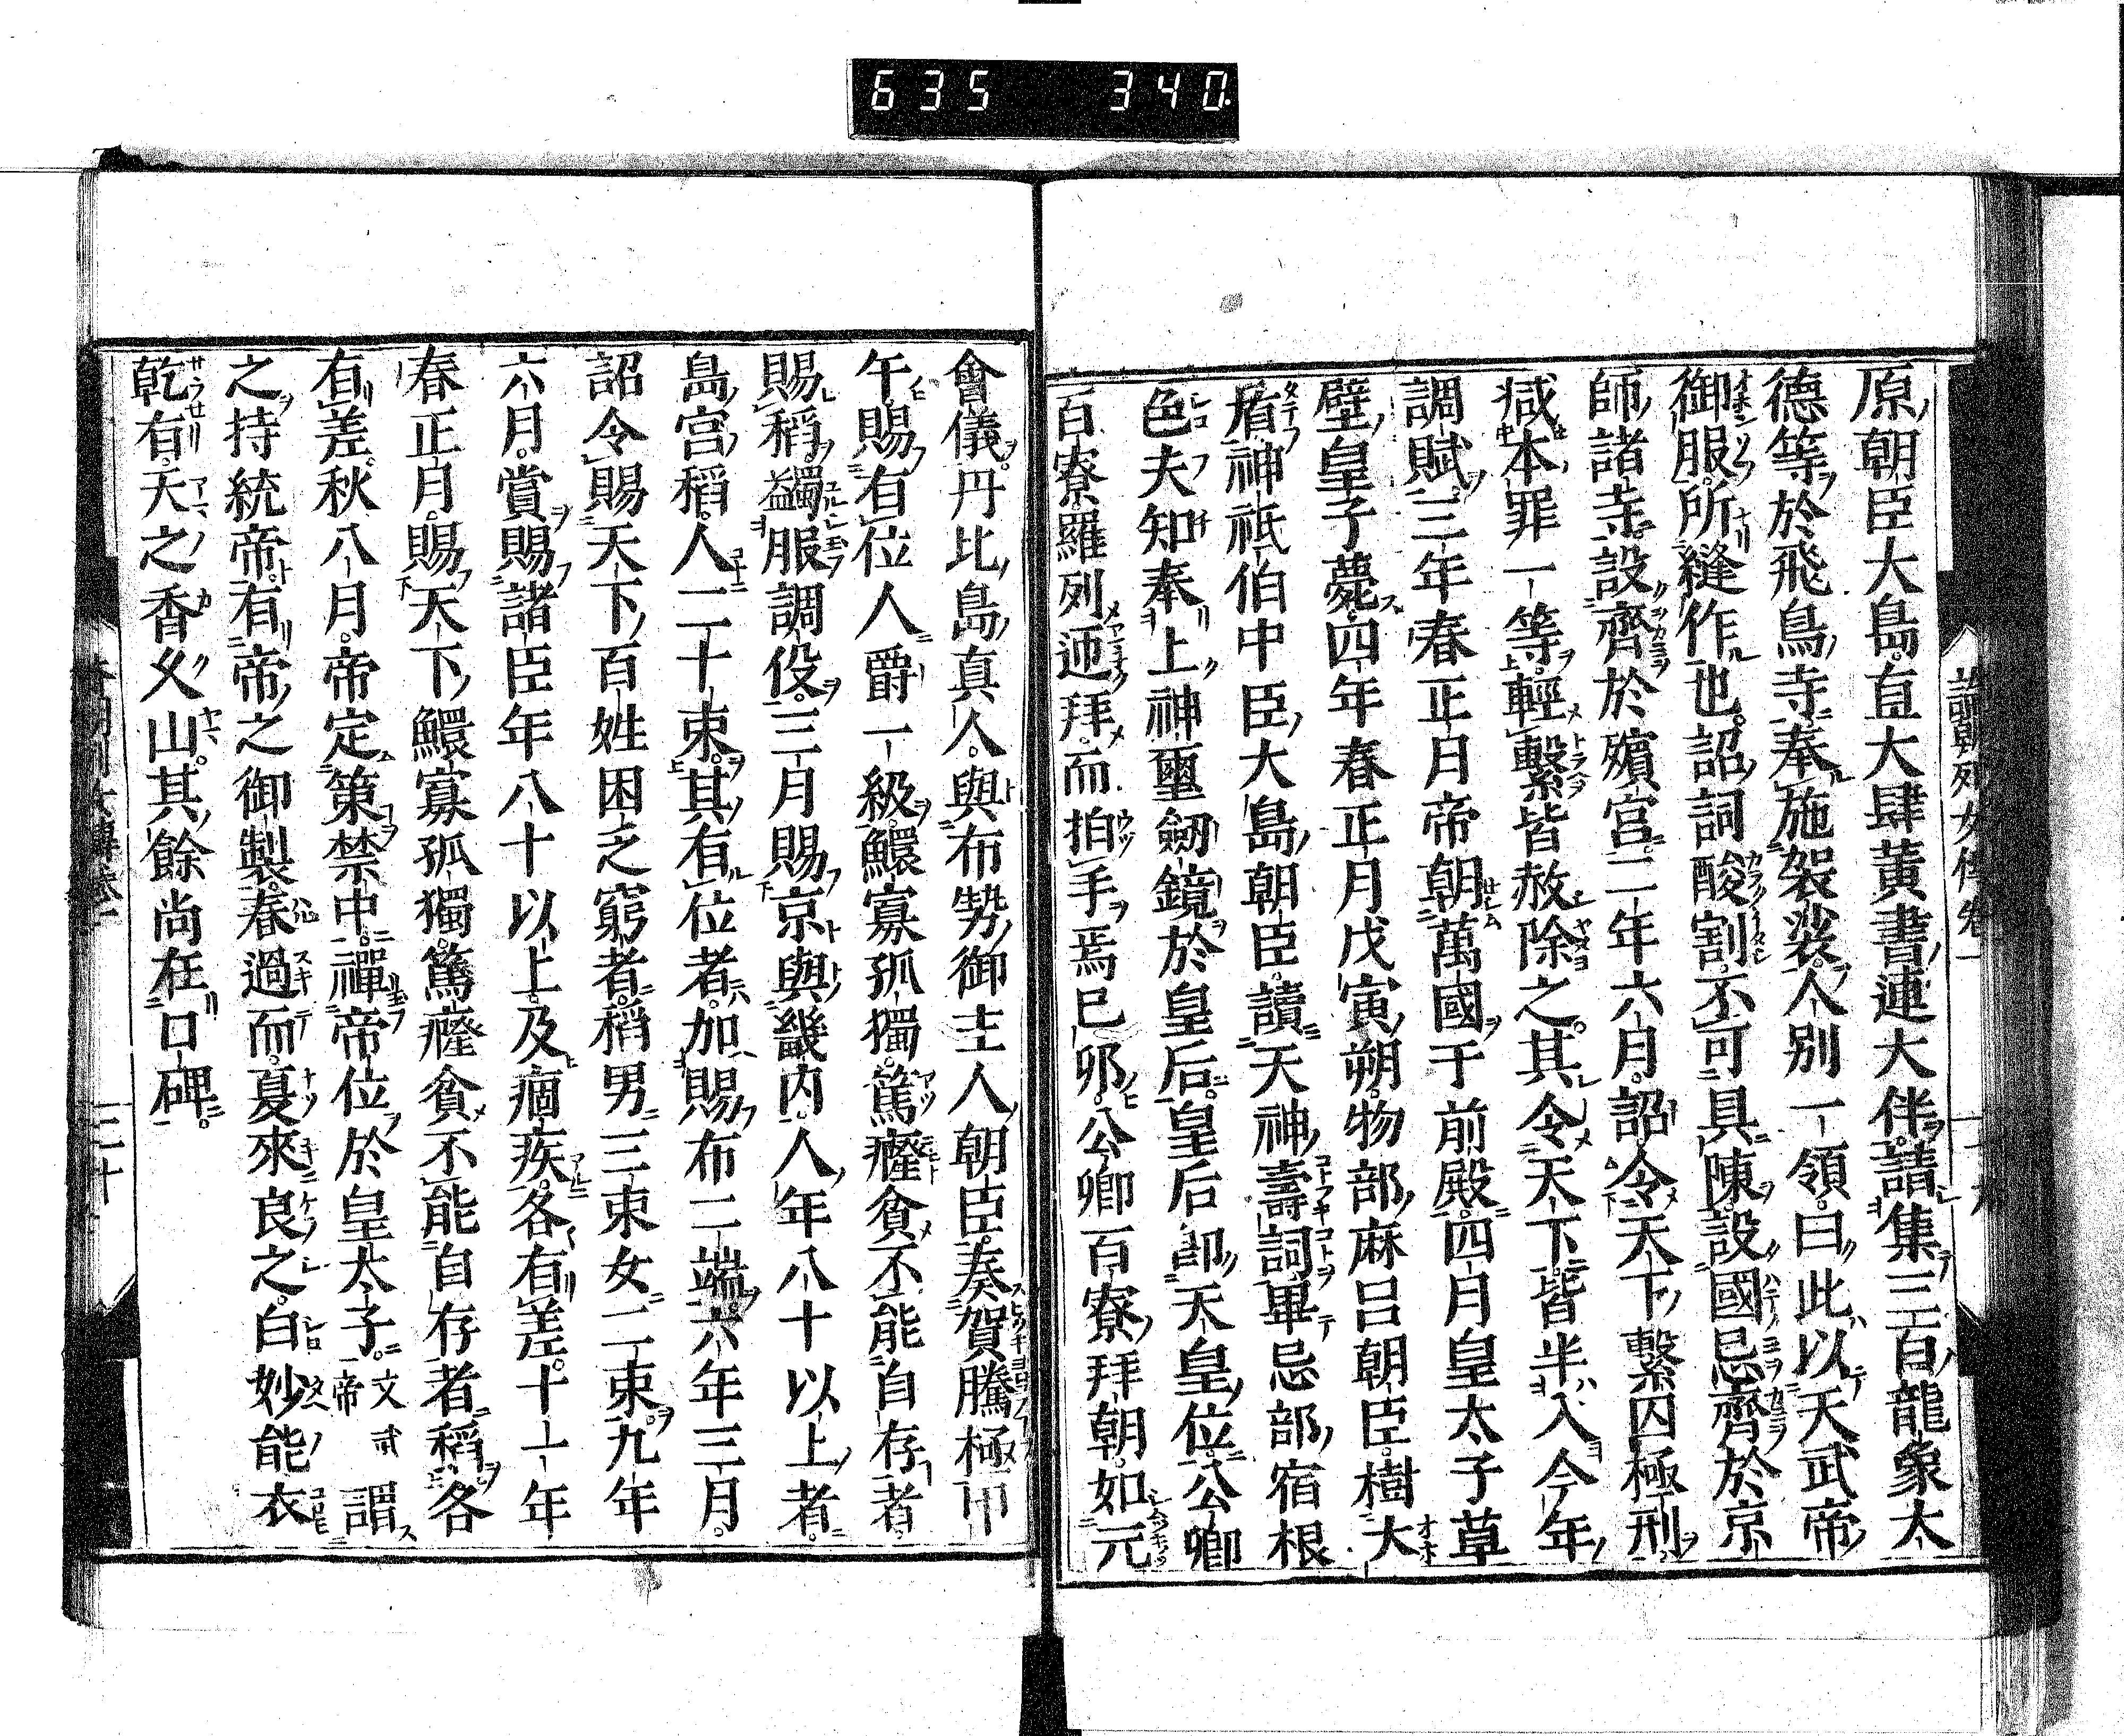 635 340
原朝臣大島直大肆黃書連大伴請集三百龍象太
德等於飛鳥寺奉施袈裟人別一領曰此以天武帝
御服所縫作也詔詞酸割不可具陳設國忌齊於京
師諸寺設齊於殯宮二年六月詔令天下繫囚極刑
減本罪一等輕繫皆赦除之其令天下皆半入今年
調賦三年春正月帝朝萬國于前殿四月皇太子草
壁皇子薨四年春正月戊寅朔物部麻呂朝臣樹大
盾神祇伯中臣大島朝臣讀天神壽詞畢忌部宿根
色夫知奉上神璽劒鏡於皇后皇后即天皇位公卿
百寮羅列迊拜而拍手焉巳卯公卿百寮拜朝如元
會儀丹比島真人與布勢御主人朝臣奏賀騰極甲
午賜有位人爵一級鰥寡孤獨篤癃貧不能自存者
賜稻蠲服調役三月賜京與畿内人年八十以上者
島宮稻人二十束其有位者加賜布二端六年三月
詔令賜天下百姓困乏窮者稻男三束女二束九年
六月賞賜諸臣年八十以上及痼疾各有差十一年
春正月賜天下鰥寡孤獨篤癃貧不能自存者稻各
有差秋八月帝定策禁中禪帝位於皇太子文武帝謂
之持統帝有帝之御製春過而夏來良之白妙能衣
乾有天之香久山其餘尚在口碑